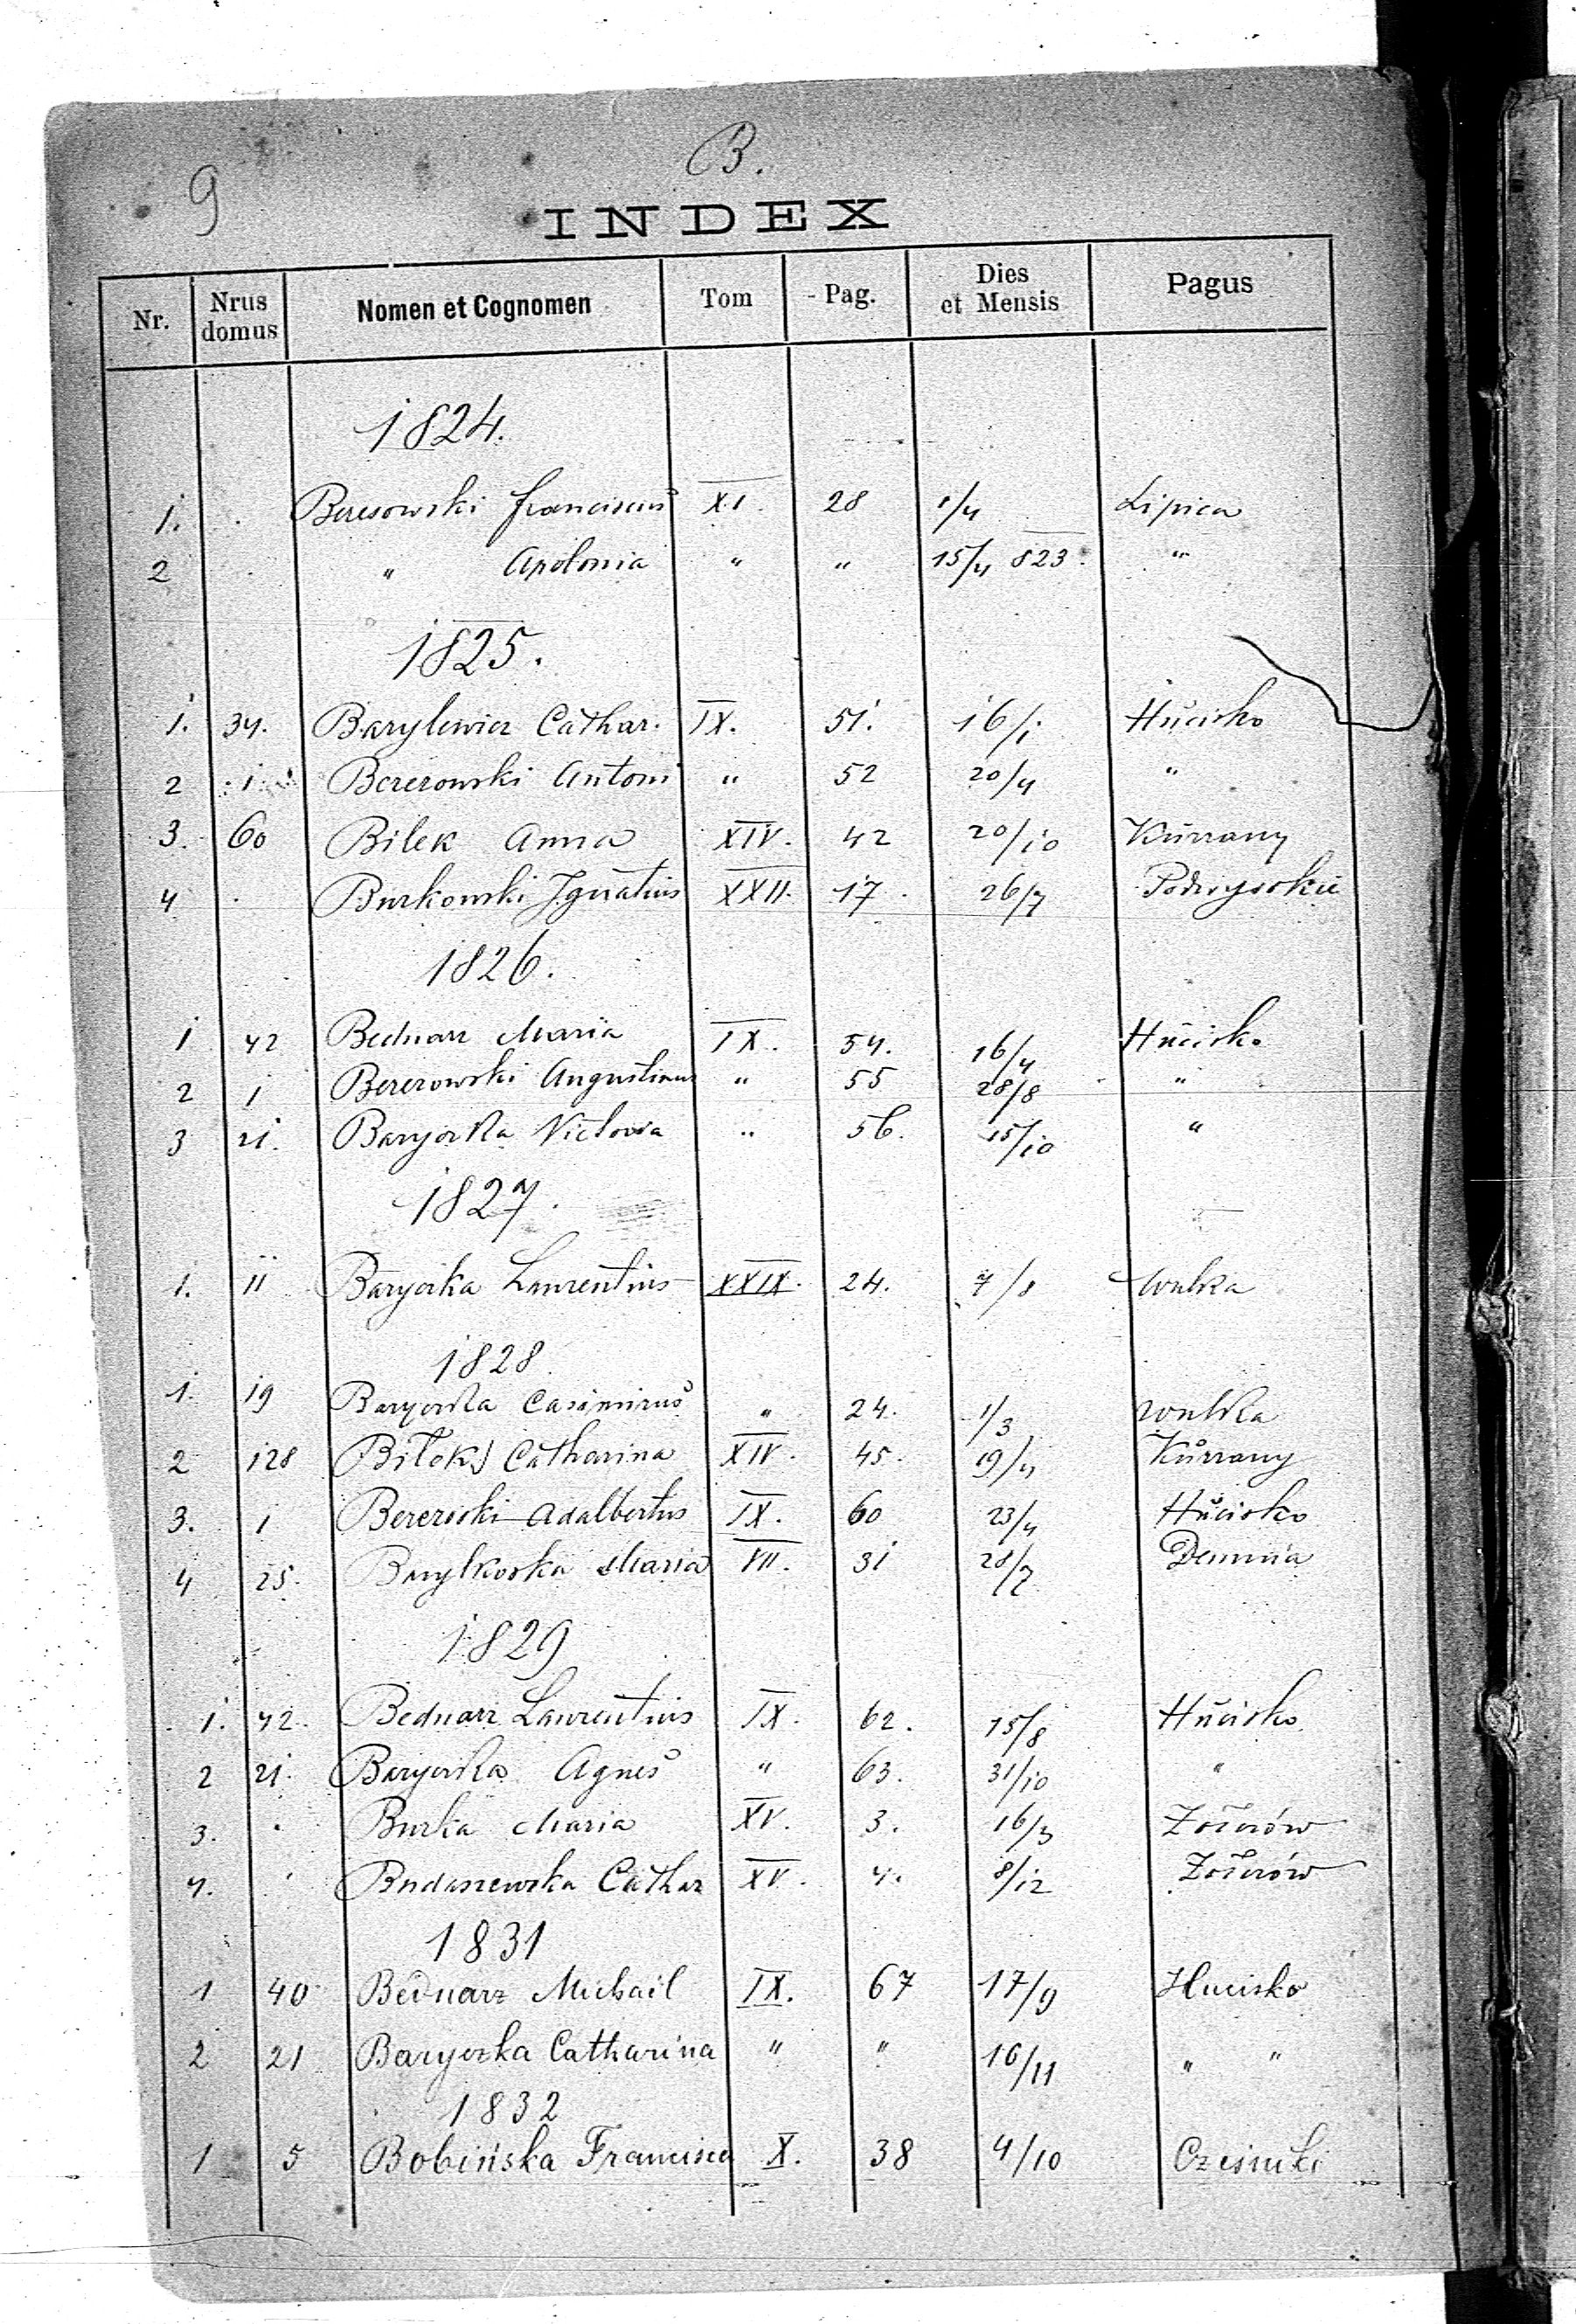 9
B.
INDEX
Nr. Nrus domus Nomen et Cognomen Tom Pag. Dies et Mensis Pagus
1824.
1. Beresowski Franciscus XI. 28 1/4 Lipica
2 " Apolonia " " 15/4 823. "
1825.
1. 34. Barylewicz Cathar. IX. 51. 16/1 Hucisko
2 1 Berezowski Antoni " 52 20/4 "
3. 60 Bilek Anna XIV. 42 20/10 Kurzany
4 Burkowski Ignatius XXII. 17 26/7 Podwysokie
1826.
1 42 Bednarz Maria IX. 54. 16/4 Hucisko
2 1 Berezowski Augustinus " 55 28/8 "
3 21. Baryczka Victoria " 56. 15/10 "
1827.
1. 11 Baryczka Laurentius XXIX. 24. 7/8 Wulka
1828
1. 19 Baryczka Casimirus " 24. 1/3 Wulka
2 128 Bilek Catharina XIV. 45. 19/4 Kurzany
3. 1 Berezoski Adalbertus IX. 60 23/4 Hucisko
4 25. Barylkoska Maria VII. 31 28/7 Demnia
1829
1. 42. Bednarz Laurentius IX. 62. 15/8 Hucisko
2 21. Baryczka Agnes " 63. 31/10 "
3. Burka Maria XV. 3. 16/3 Żołnów
4. Budaszewska Cathar XV. 4. 8/12 Żołnów
1831
1 40 Bednarz Michail IX. 67 17/9 Hucisko
2 21 Baryczka Catharina " " 16/11 " "
1832
1 5 Bobińska Francisca X. 38 4/10 Cześniki